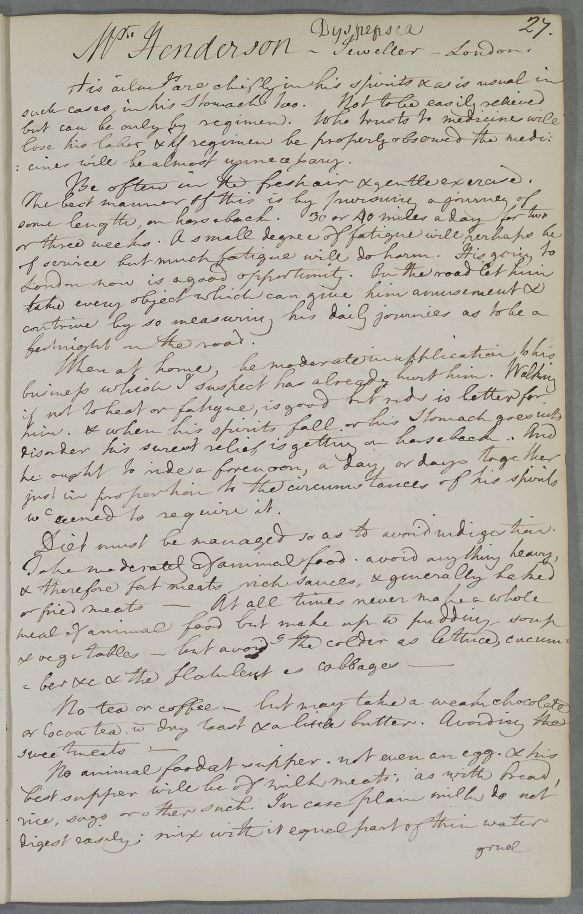 27.
Dyspepsia
Mr. Henderson – Jeweller – London.
His ailmts are chiefly in his spirits & as is usual in
such cases, in his Stomach too. Not to be easily relieved
but can be only by regimen. Who trusts to medicine will
lose his labor, & if regimen be properly observed the medi:
:cines will be almost unnecessary.
Be often in the fresh air & gentle exercise.
The best manner of this is by pursuing a journey of
some length, on horseback. 30 or 40 miles a day for two
or three weeks. A small degree of fatigue will perhaps be
of service but much fatigue will do harm. His going to
London now is a good opportunity. On the road let him
take every object which can give him amusement &
contrive by so measuring his daily journies as to be a
fortnight on the road.
When at home, be moderate in application to his
business which I suspect has already hurt him. Walking
if not to heat or fatigue, is good but ride is better for
him. & when his spirits fall or his Stomach goes into
disorder his surest relief is getting on horseback. And
he ought to ride a forenoon, a day, or days together
just in proportion to the circumstances of his spirits
wc. seemed to require it.
Diet must be managed so as to avoid indigestion.
Take moderately of animal food. avoid any thing heavy,
& therefore fat meats, rich sauces, & generally baked
or fried meats — At all times never make a whole
meal of animal food but make up w pudding, soup
& vegetables — but avoid the colder as lettuce, cucum=
=ber &c & the flatulent as cabbages —
No tea or coffee — but may take a weak chocolate
or Cocoa tea w dry toast & a little butter. Avoiding the
sweetmeats —
No animal food at supper. not even an egg. & his
best supper will be of milk meats; as with bread,
rice, sago or other such. In case plain milk do not
digest easily; mix with it equal part of thin water
gruel